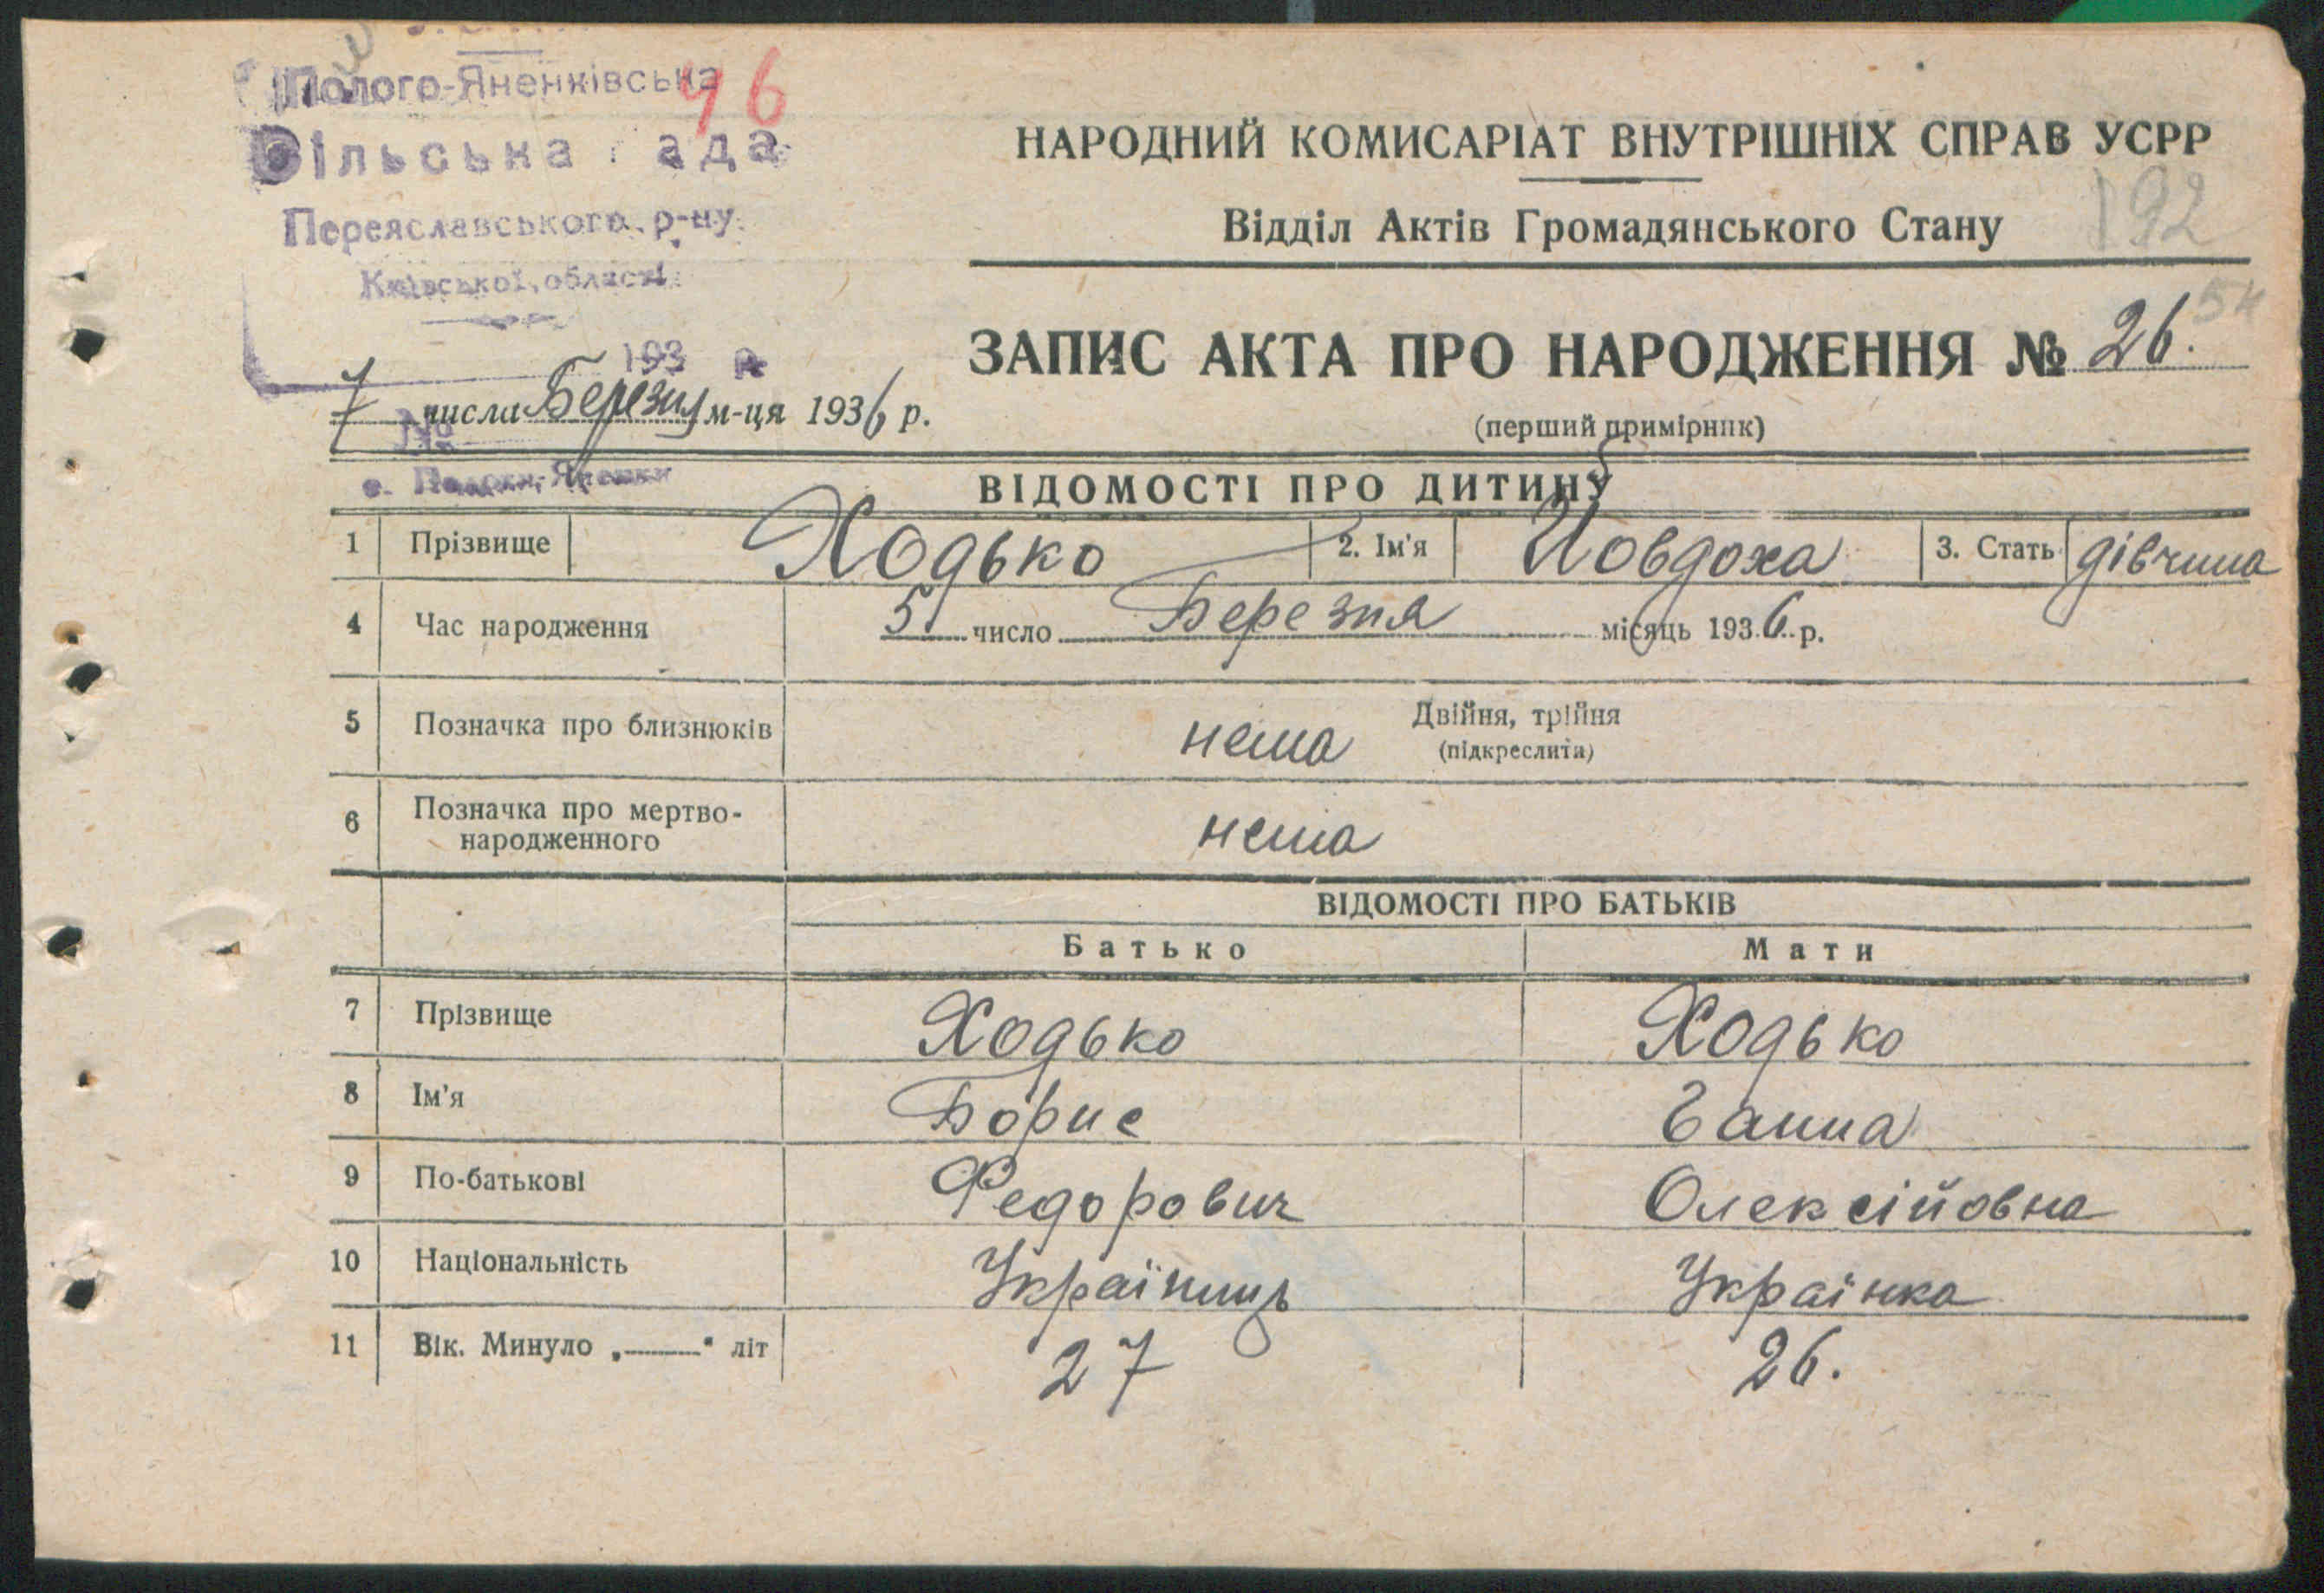 Полого-Яненківська
46
Сільська рада
Переяславського р-ну
Київської області
193 р.
№
с. Пологи-Яненки
НАРОДНИЙ КОМИСАРІАТ ВНУТРІШНІХ СПРАВ УСРР
192
Відділ Актів Громадянського Стану
54
ЗАПИС АКТА ПРО НАРОДЖЕННЯ № 26.
7 числа Березня м-ця 1936 р.
(перший примірник)
ВІДОМОСТІ ПРО ДИТИНУ
1 Прізвище Ходько 2. Ім'я Йовдоха 3. Стать дівчина
4 Час народження 5 число Березня місяць 1936 р.
5 Позначка про близнюків нема Двійня, трійня
(підкреслити)
6 Позначка про мертво-
народженного нема
ВІДОМОСТІ ПРО БАТЬКІВ
Батько Мати
7 Прізвище Ходько Ходько
8 Ім'я Борис Ганна
9 По-батькові Федорович Олексійовна
10 Національність Україниць Українка
11 Вік. Минуло „——" літ 27 26.